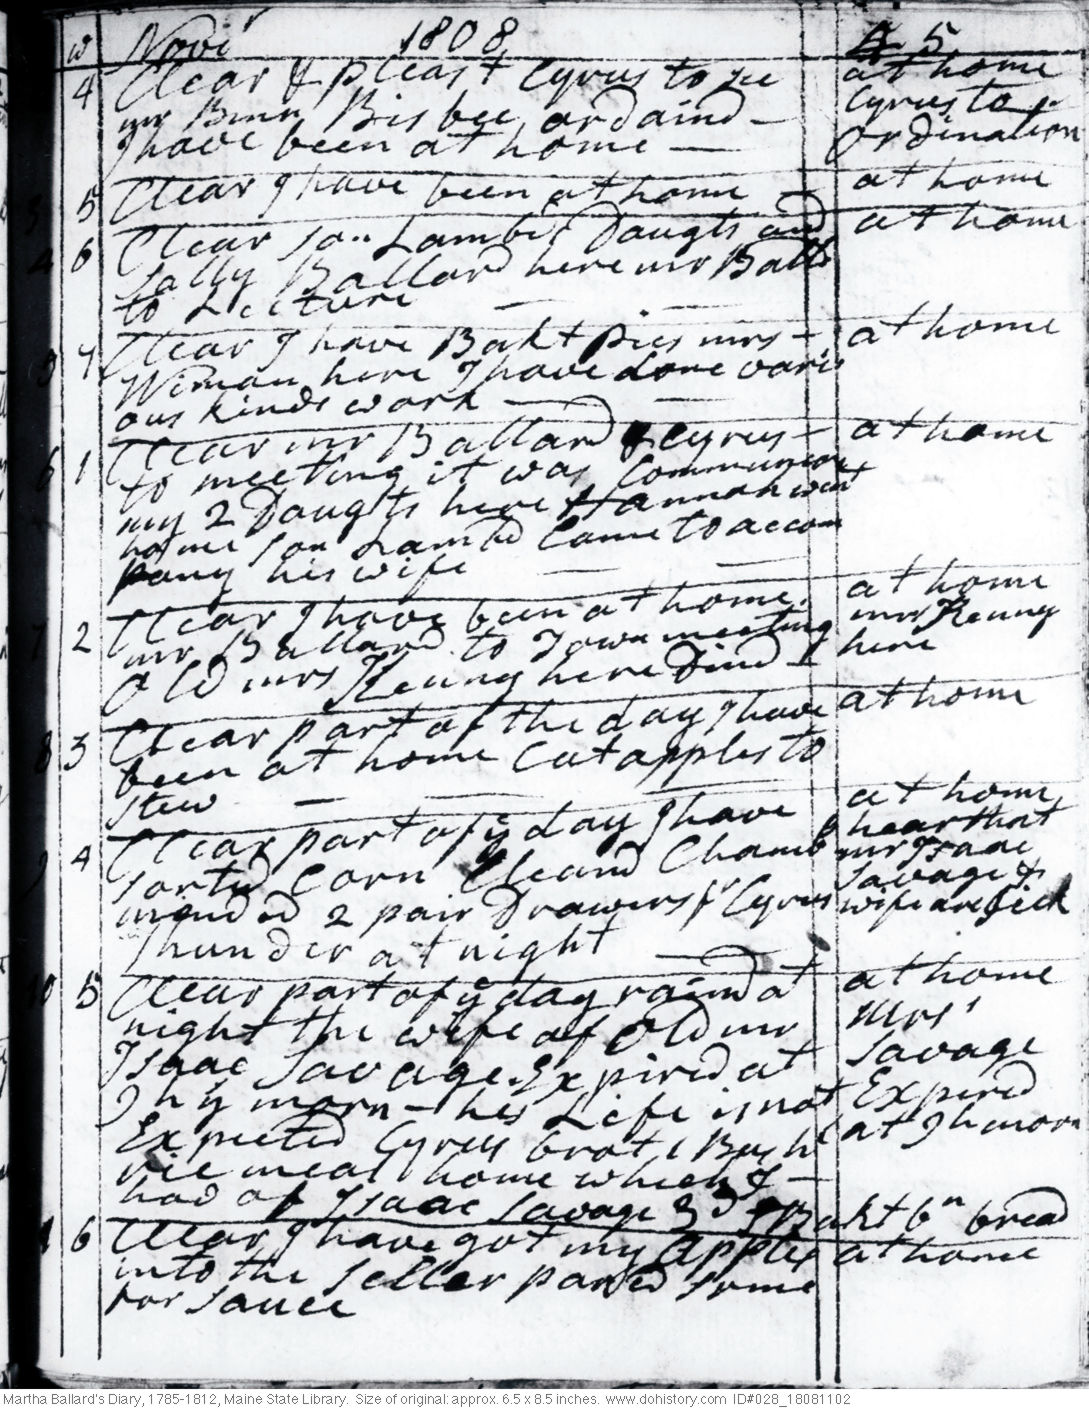 w Novr 1808 A 5
4 Clear & pleast Cyrus to see at home
mr Binn Bisbee ordaind – Cyrus to
I have been at home — ordination
3 5 Clear I have been at home – at home
4 6 Clear son Lambd Daugts and at home
Sally Ballard here mr Balld
to Lecture
7 Clear I have Bakt pies mrs – at home
Wiman here I have done vari
ous kinds work —
6 1 Clear mr Ballard & Cyrus – at home
to meeting it was Communion
my 2 Daugts here Hannah went
home son Lambd Came to accom
pany his wife
7 2 Clear I have been at home. at home
mr Ballard to Town meeting mrs Kenny
old mrs Kenny here Dind here
8 3 Clear part of the day I have at home
been at home Cut apples to
stew
9 4 Clear part of ye day I have at home
sorted Corn Cleand Chamb hear that
mended 2 pair Drawers fr Cyrus mr Isaac
Thunder at night Savage &
wife are sick
10 5 Clear part of ye day raind at at home
night the wife of old mr Mrs
Isaac Savage Expired at Savage
9 h y morn – his Life is not Expired
Expected Cyrus brot 1 Bush at 9 h morn
rie meal home which I –
had of Isaac Savage 3d I Bakt bn bread
1 6 Clear I have got my Apples at home
into the seller pared some
for sauce
Martha Ballard's Diary, 1785-1812, Maine State Library. Size of original: approx. 6.5 x 8.5 inches. www.dohistory.com ID#028_18081102